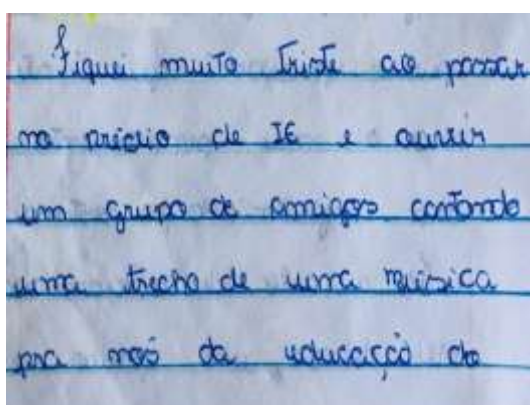 Fiquei muito triste ao passar
no prédio de IE e ouvir
um grupo de amigos cantando
uma trecho de uma música
pra nós da educação do